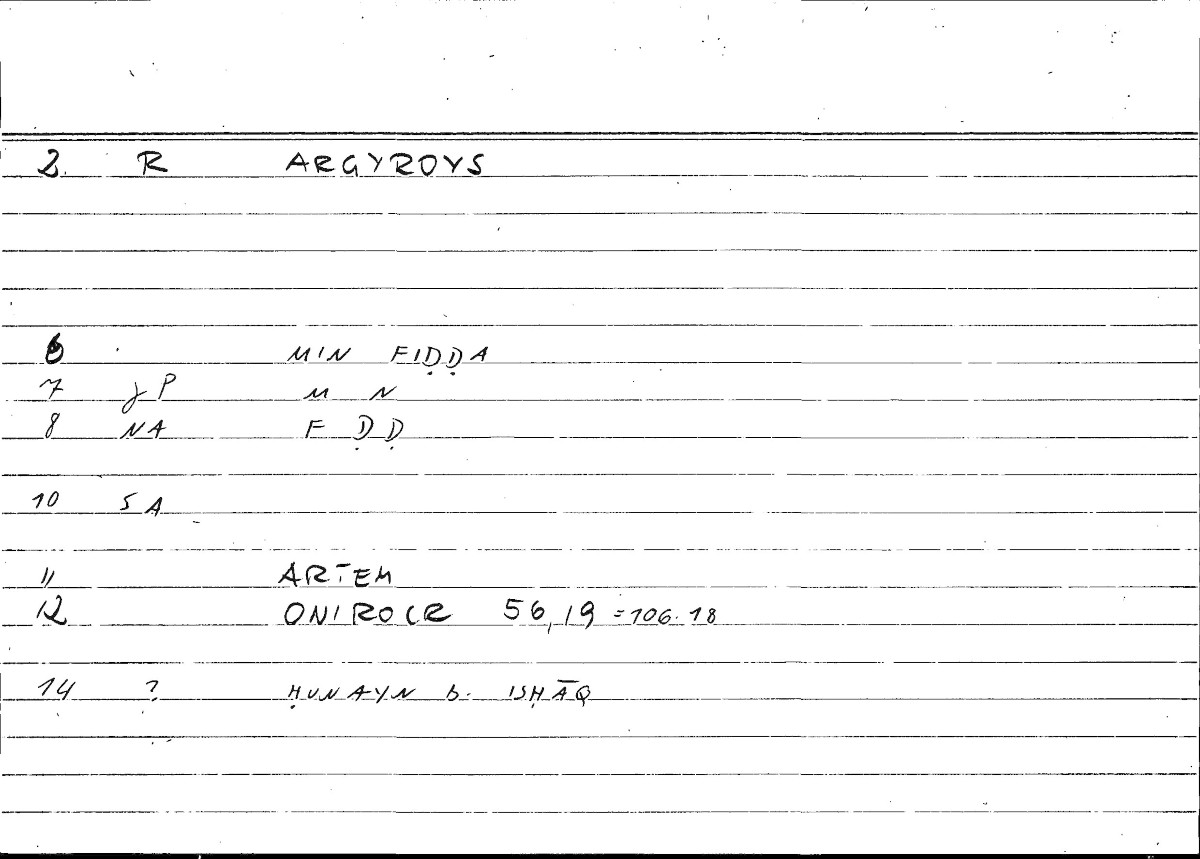 2. R ARGYROYS
6 MIN FIḌḌA
7 γP M N
8 NA F ḌḌ
10 SA
11 ARTEM
12 ONIROCR 56,19 =106.18
14 ? ḤUNAYN b. ISḤĀQ